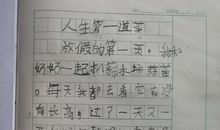 人生第一道菜
放假的第一天，我和
奶奶一起把蒜水培蒜苗
。每天我都去看它有没
有长高。过了一天又一